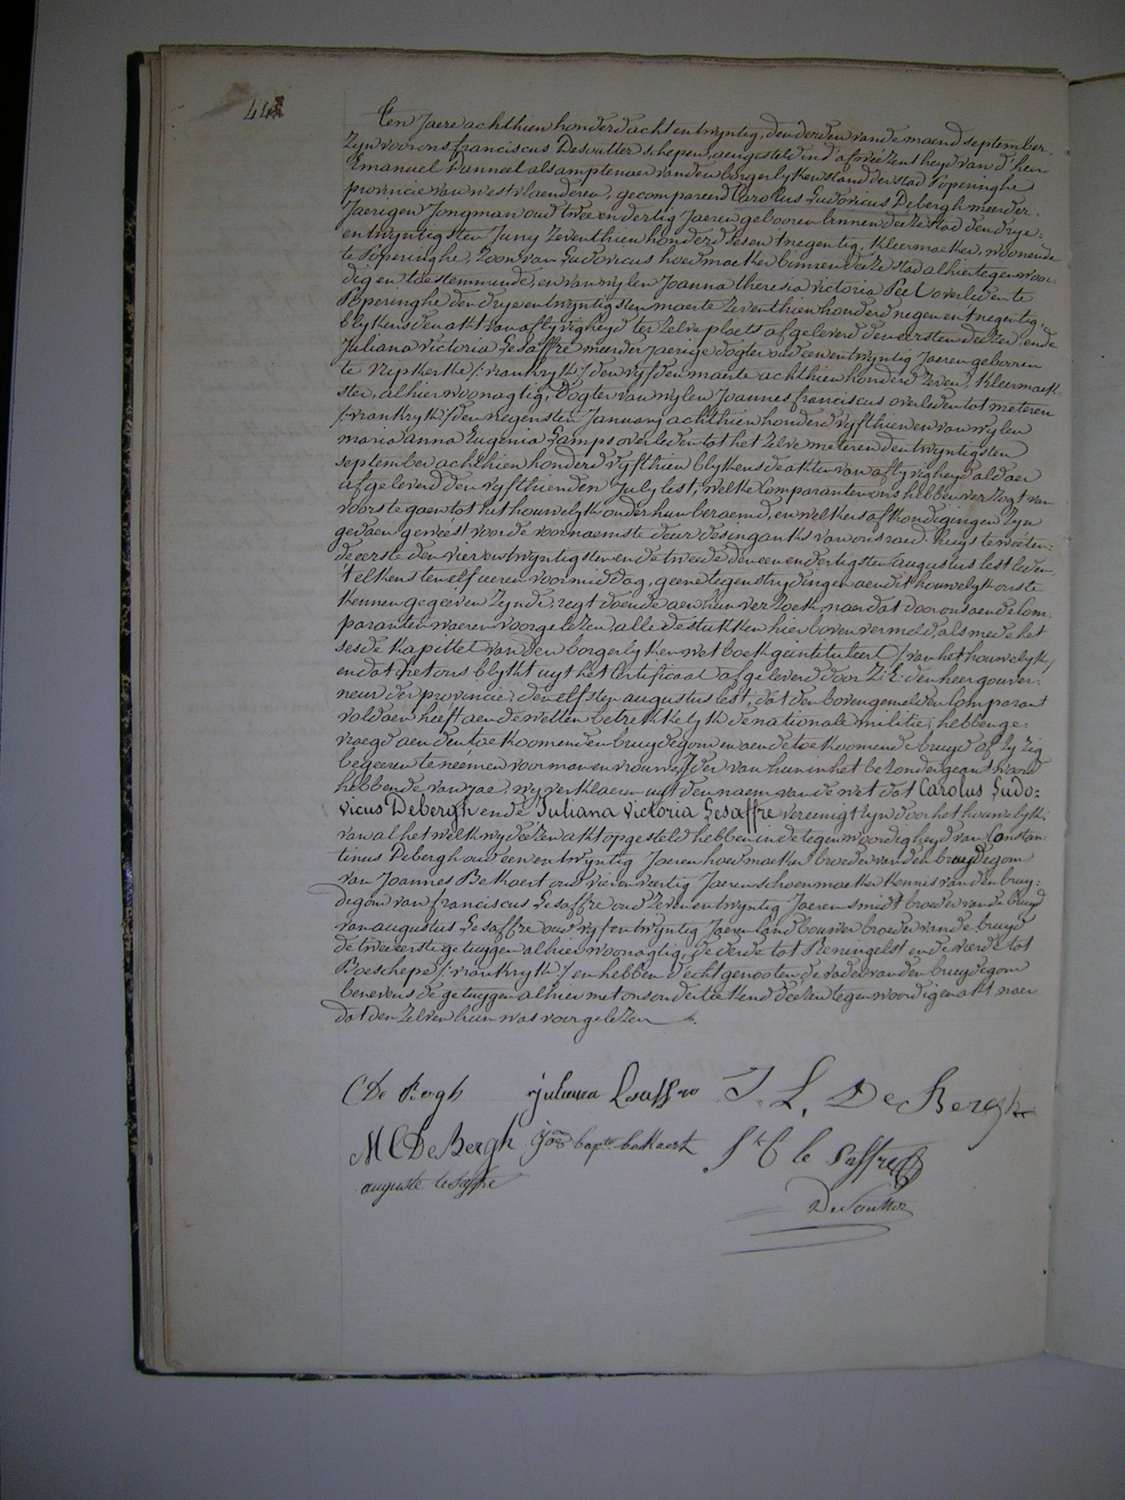 44
Ten Jaere achthien honderd acht en twyntig, den derden van de maend september
zyn voor ons franciscus Desoutter schepen, aengesteld ind' afweezentheyd van d'heer
Emanuel vanneel als amptenaer van den borgerlyken stand der stad Poperinghe
provincie van westvlaenderen, gecompareerd Carolus Ludovicus Debergh meerder-
Jaerigen Jongman oud twee en dertig Jaeren gebooren binnen deeze stad den drye-
entwyntigsten Juny zeventhien honderd sesentnegentig, kleermaeker, woonende
te Poperinghe, zoon van Ludovicus hoedmaeker binnen deze stad alhier tegenwoor-
dig en toestemmende, en van wylen Joanna theresia victoria Peel overleden te
Poperinghe den drye entwyntigsten maerte zeventhien honderd negenentnegentig
blykens den akt van aflyvigheyd ter zelve plaets afgeleverd den eersten deezer, ende
Juliana victoria Lesaffre meerderjaerige dogter oud een entwyntig Jaeren gebooren
te Niepkerke /:vrankryk:/ den vyfden maerte achthien honderd zeven, kleermaek-
ster, alhier woonagtig, dogter van wylen Joannes franciscus overleden tot meteren
/:vrankryk:/ den negensten January achthien honderd vyfthien en van wylen
maria anna Eugenia Lamps overleden tot het zelve meteren den twyntigsten
september achthien honderd vyfthien blykens de akten van aflyvigheyd aldaer
afgeleverd den vyfthienden July lest, welke Comparanten ons hebben verzogt van
voorstegaen tot het houwelyk onder hun beraemd, en welkers afkondigingen zyn
gedaen geweest voor de voornaemste deur des ingankx van ons raed-huys te weeten:
de eerste den vierentwyntigsten en de tweede den eenendertigsten augustus lestleden
telkens ten elf ueren voormiddag, geene tegenstrydingen aen dit houwelyk ons te
kennen gegeeven zynde, regt doende aen hun verzoek, naer dat door ons aen de Com-
paranten waeren voorgelezen alle de stukken hier boven vermeld, als mede het
sesde kapittel van den borgerlyken wetboek geintituleert /:van het houwelyk:/
en dat het ons blykt uyt het Certificaet afgeleverd door Z:E: den heer gouver-
neur der provincie, den elfsten augustus lest, dat den bovengemelden Comparant
voldaen heeft aen de wetten betrekkelyk de nationale militie, hebben ge-
vraegd aen den toekoomenden bruydegom en aen de toekoomende bruyd of zy zig
begeeren te neemen voor man en vrouw, Jder van hun in het bezonder geantwoord
hebbende van jae, wy verklaeren uyt den naem van de wet dat Carolus Ludo-
vicus Debergh ende Juliana victoria Lesaffre vereenigt zyn door het houwelyk,
van al het welk wy deezen akt opgesteld hebben in de tegenwoordigheyd van Constan-
tinus Debergh oud een en twyntig Jaeren hoedmaeker broeder van den bruydegom
van Joannes Bekaert oud vier en veertig Jaeren schoenmaeker kennis van den bruy-
degom van franciscus Lesaffre oud zeven entwyntig Jaeren smidt broeder van de bruyd
van augustus Lesaffre oud vyf entwyntig Jaeren landbouwer broeder van de bruyd
de twee eerste getuygen alhier woonagtig, de derde tot Reningelst en de vierde tot
Boeschepe /:vrankryk:/ en hebben d'echtgenooten, de vader van den bruydegom
benevens de getuygen alhier met ons onderteekend deezen tegenwoordigen akt naer
dat den zelven hun was voorgelezen
C De Bergh juliana Lesaffre J L, De Bergh
M C De Bergh Joes bapte bekkaert F C le Saffre
auguste lesaffre
Desoutter